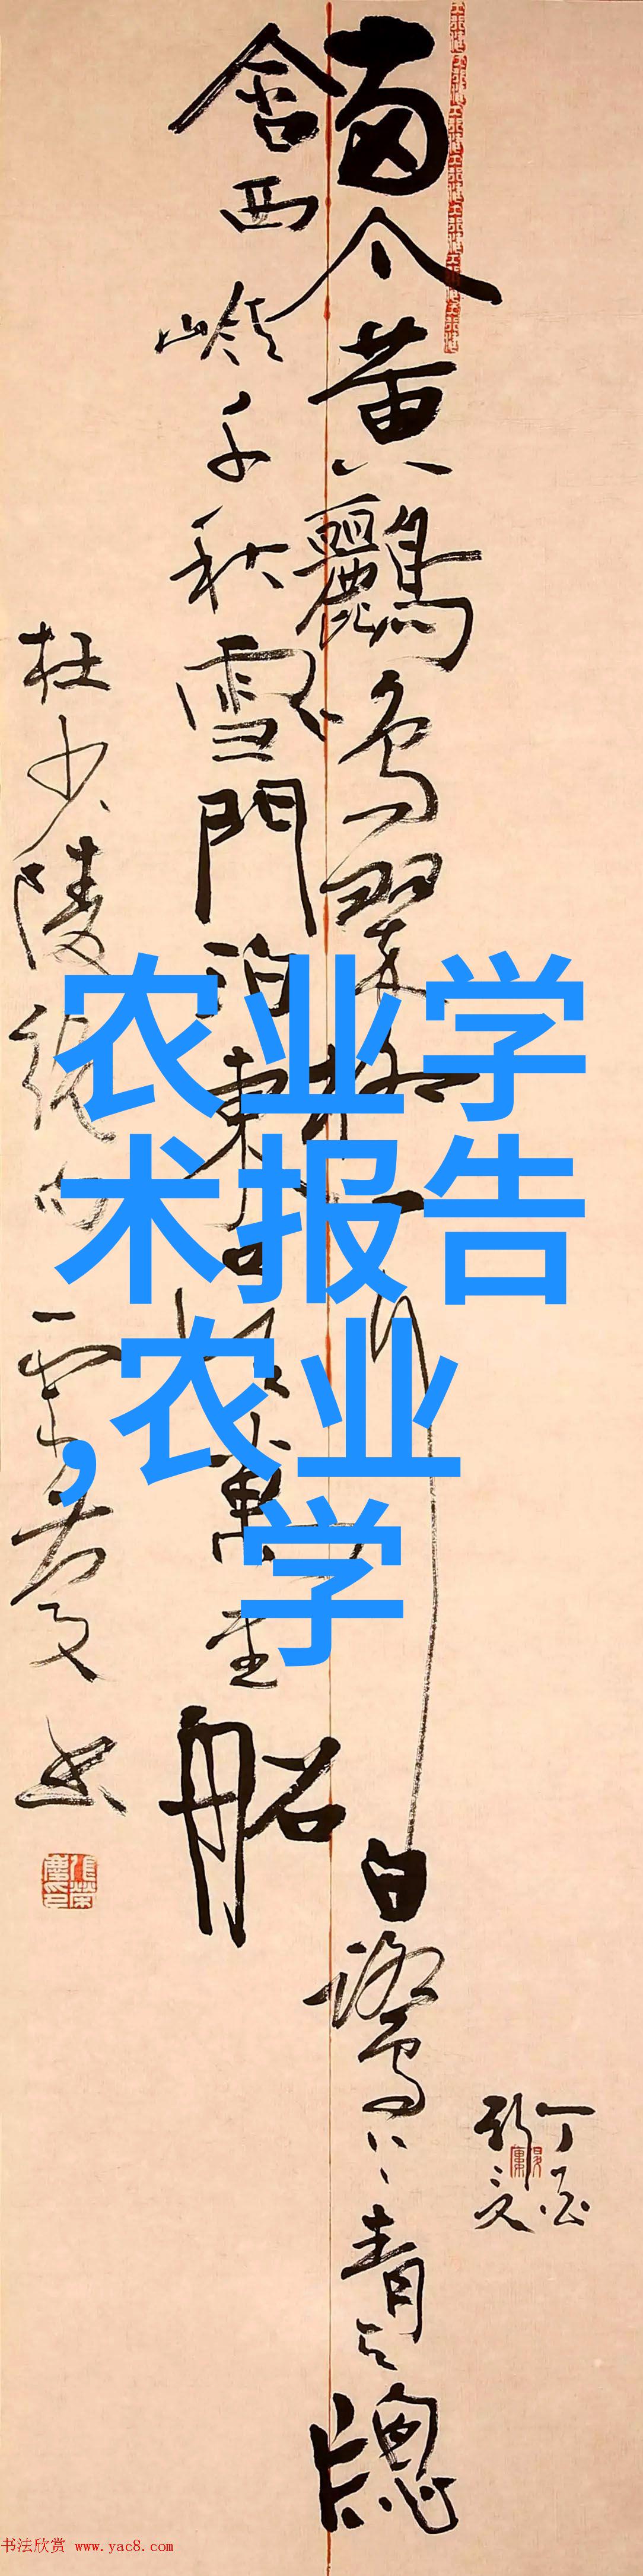 兩个黄鸝鳴翠柳一行白鷺上青天窗
含西嶺千秋雪門泊東吴萬里船
杜少陵絶句
农业学
术报告
,农业
学
书法欣赏 www.yac8.com